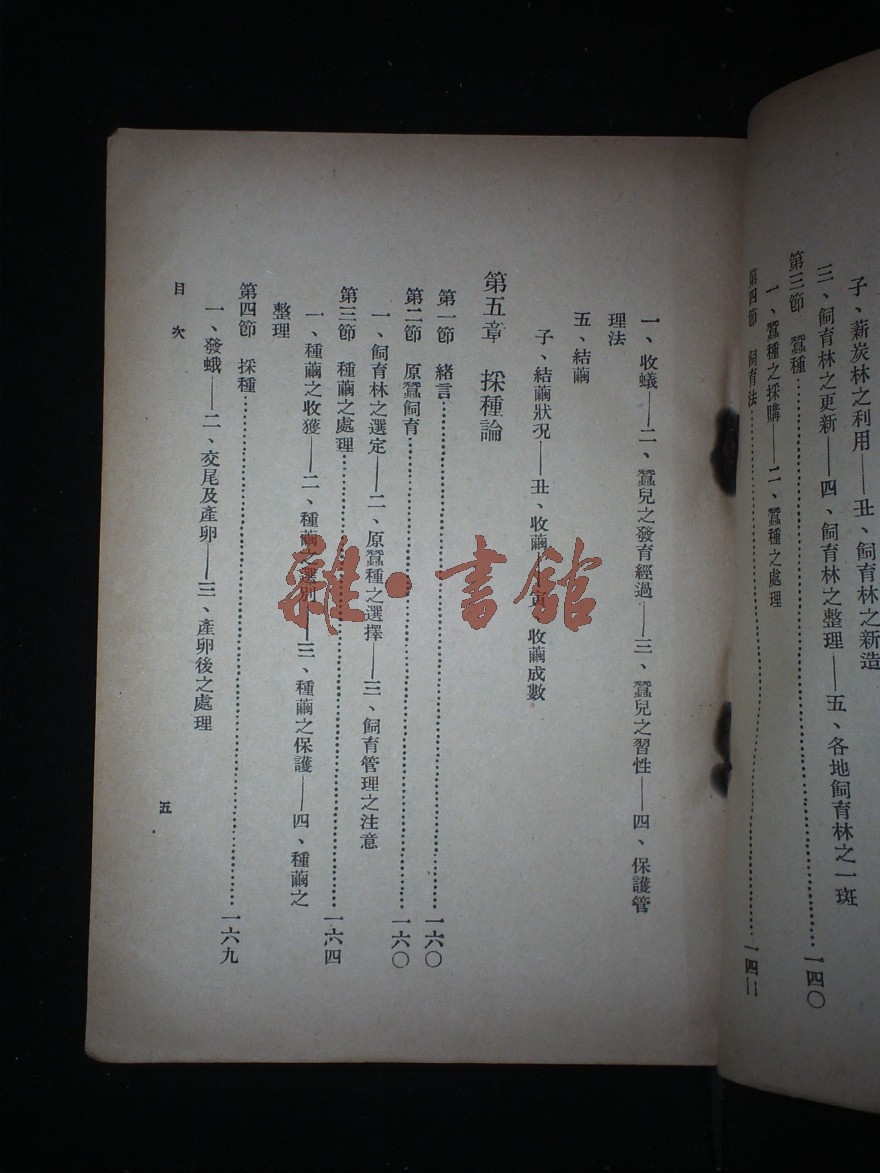 子、薪炭林之利用——丑、飼育林之新造
三、飼育林之更新——四、飼育林之整理——五、各地飼育林之一斑
第三節 蠶種……一四〇
一、蠶種之採購——二、蠶種之處理
第四節 飼育法……一四二
一、收蟻——二、蠶兒之發育經過——三、蠶兒之習性——四、保護管
理法
五、結繭
子、結繭狀況——丑、收繭——寅、收繭成數
第五章 採種論
第一節 緒言……一六〇
第二節 原蠶飼育……一六〇
一、飼育林之選定——二、原蠶種之選擇——三、飼育管理之注意
第三節 種繭之處理……一六四
一、種繭之收獲——二、種繭之選別——三、種繭之保護——四、種繭之
整理
第四節 採種……一六九
一、發蛾——二、交尾及產卵——三、產卵後之處理
目次
五
雜·書館